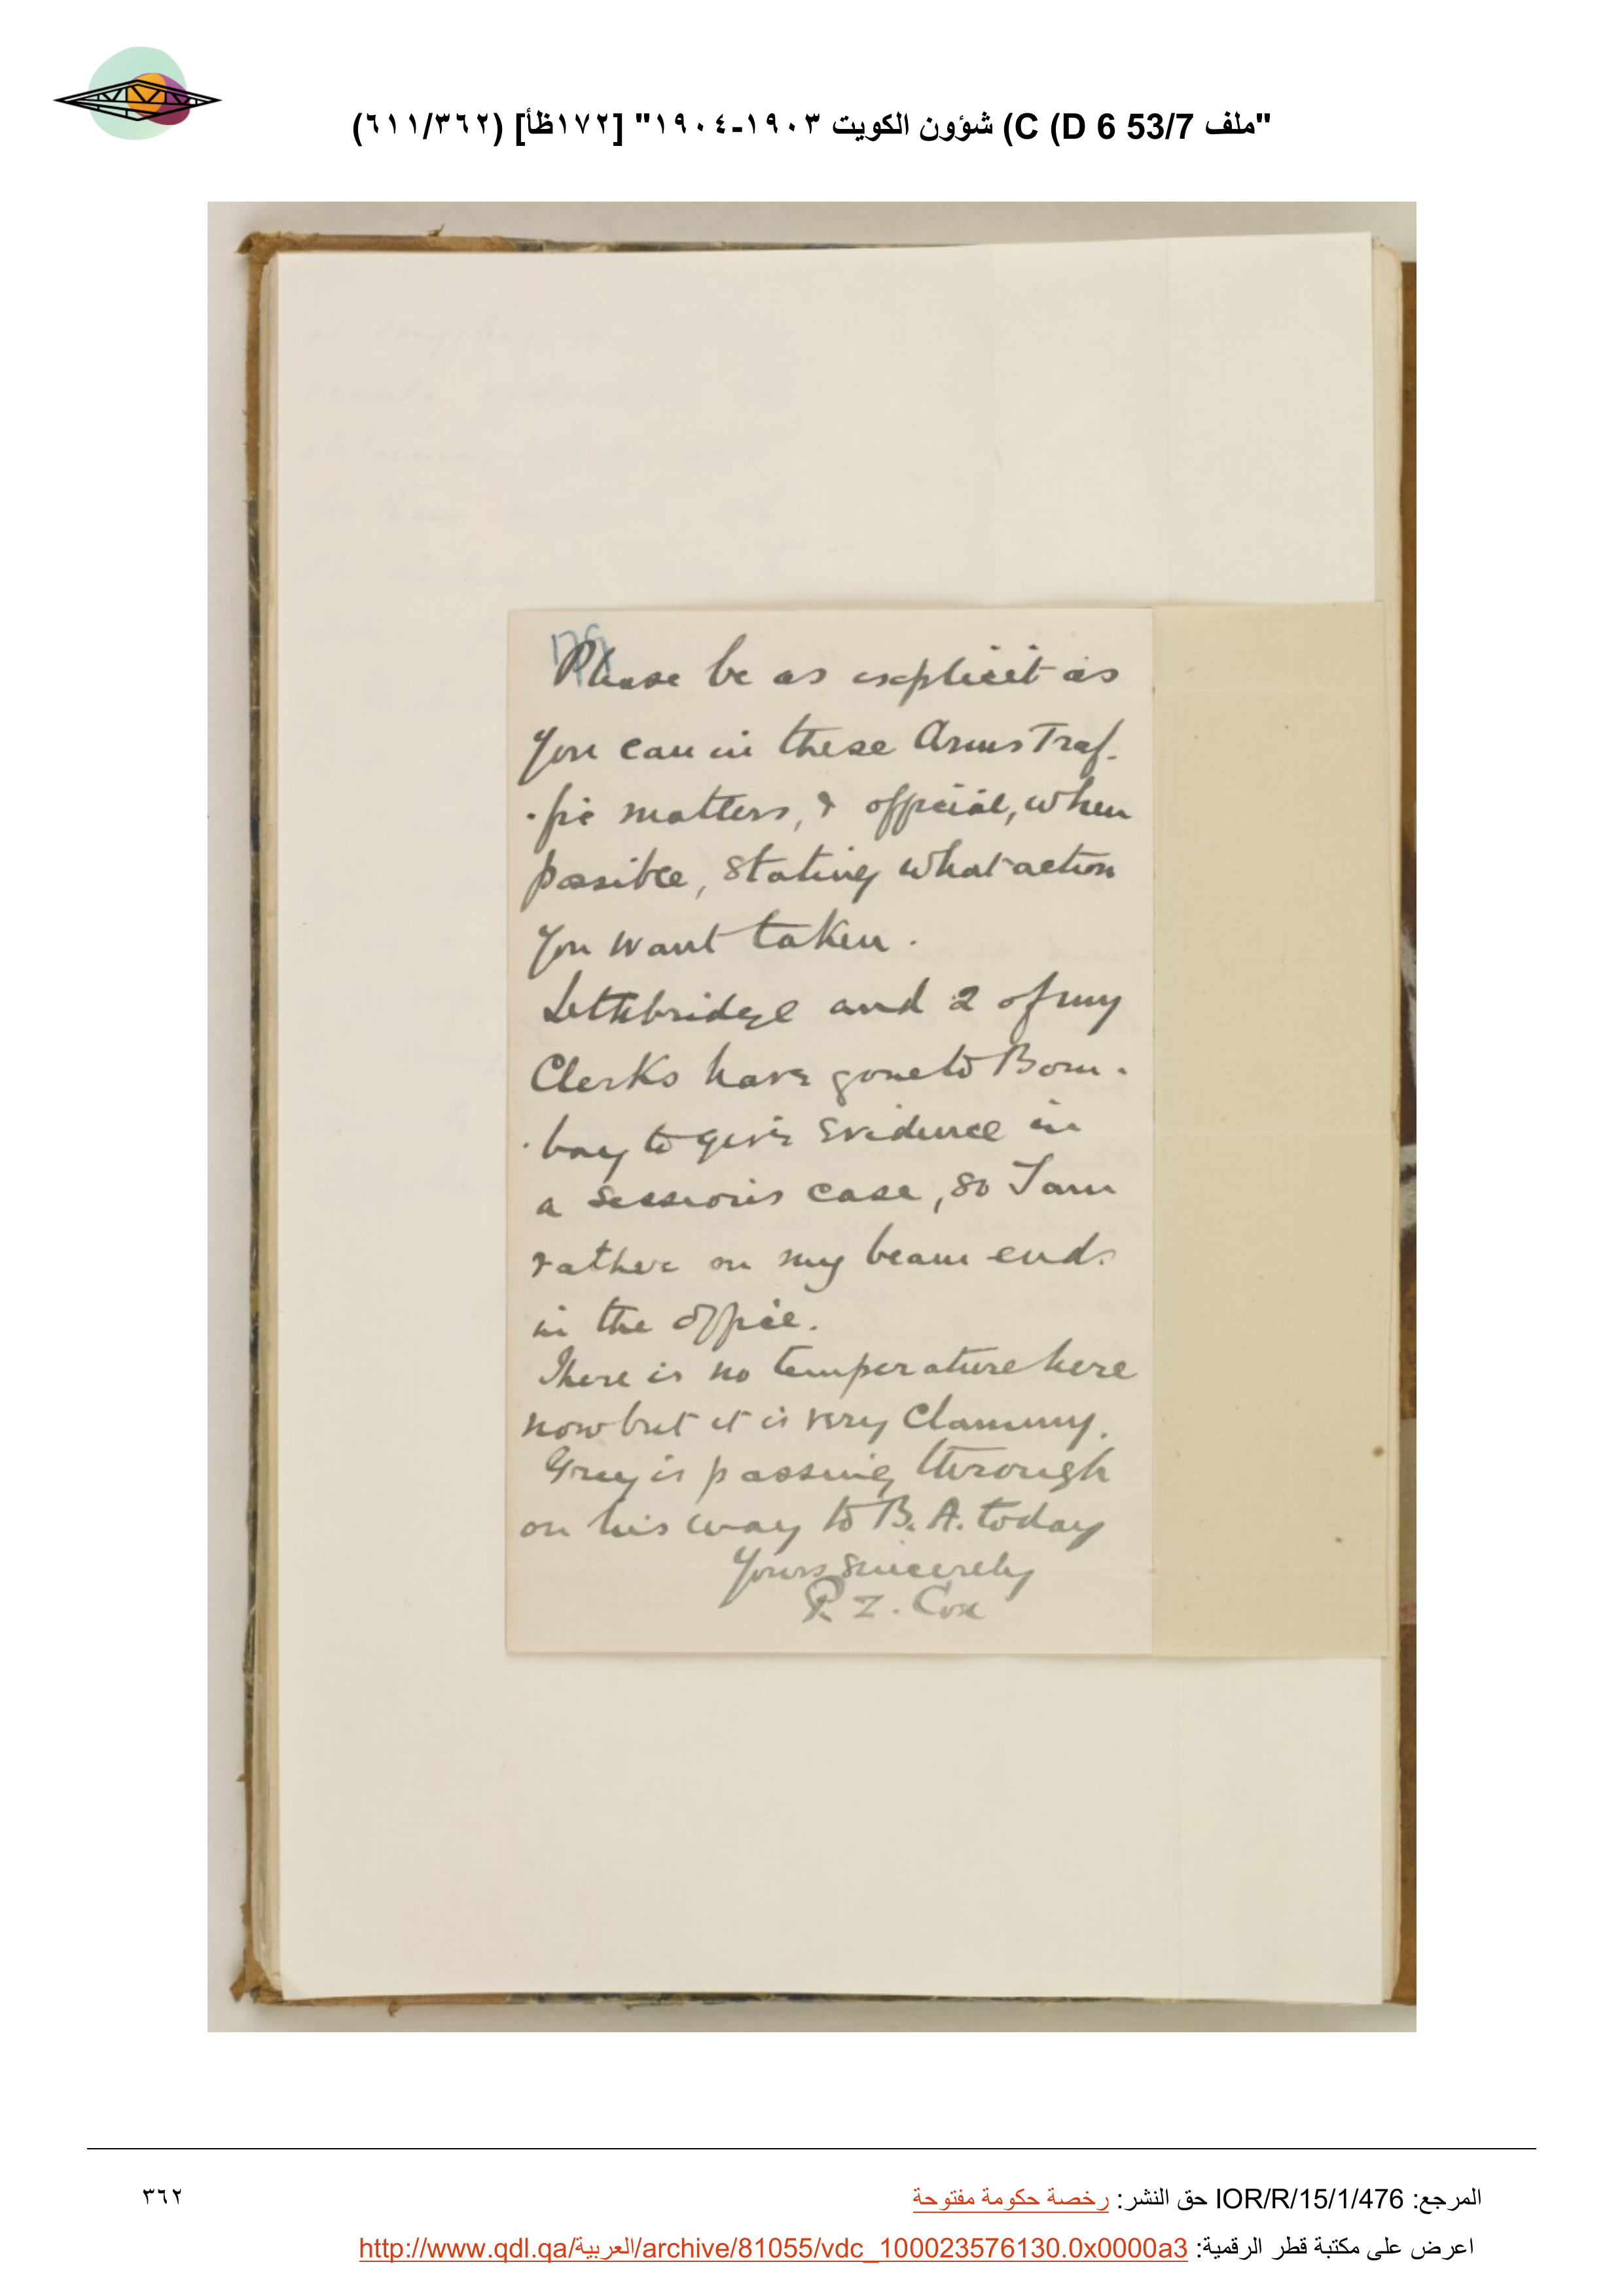 "ملف 53/7 C (D 6) شؤون الكويت ١٩٠٣-١٩٠٤" [١٧٢ظأ] (٦١١/٣٦٢)
Please be as explicit as
you can in these Arms Traf-
-fic matters, & official, when
possible, stating what action
you want taken.
Lethbridge and 2 of my
Clerks have gone to Bom-
-bay to give evidence in
a sessions case, so I am
rather on my beam ends
in the office.
There is no temperature here
now but it is very clammy.
Grey is passing through
on his way to B. A. today
Yours sincerely
P. Z. Cox
المرجع: IOR/R/15/1/476 حق النشر: رخصة حكومة مفتوحة
٣٦٢
اعرض على مكتبة قطر الرقمية: http://www.qdl.qa/العربية/archive/81055/vdc_100023576130.0x0000a3